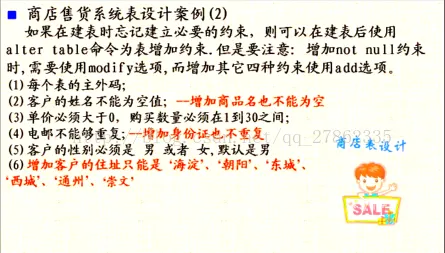 ■ 商店售货系统表设计案例(2)
如果在建表时忘记建立必要的约束，则可以在建表后使用
alter table命令为表增加约束.但是要注意: 增加not null约束
时,需要使用modify选项,而增加其它四种约束使用add选项。
(1)每个表的主外码;
(2)客户的姓名不能为空值; --增加商品名也不能为空
(3)单价必须大于0, 购买数量必须在1到30之间;
(4)电邮不能够重复; --增加身份证也不重复
(5)客户的性别必须是 男 或者 女,默认是男
(6)增加客户的住址只能是 '海淀'、'朝阳'、'东城'、
'西城'、'通州'、'崇文'
商店表设计
SALE
qq_27862335